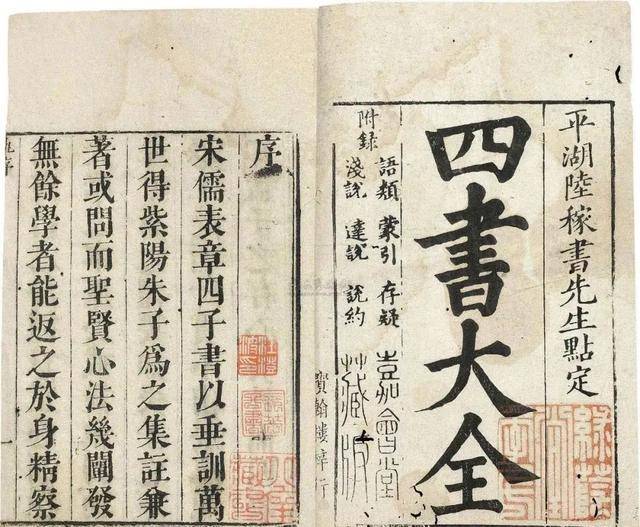 平湖陸稼書先生點定
四書大全
附録
語類 蒙引 存疑
淺說 達說 說約
嘉會堂
藏版
寶翰樓梓行
序
宋儒表章四子書以垂訓萬
世得紫陽朱子為之集註兼
著或問而聖賢心法幾闡發
無餘學者能返之於身精察